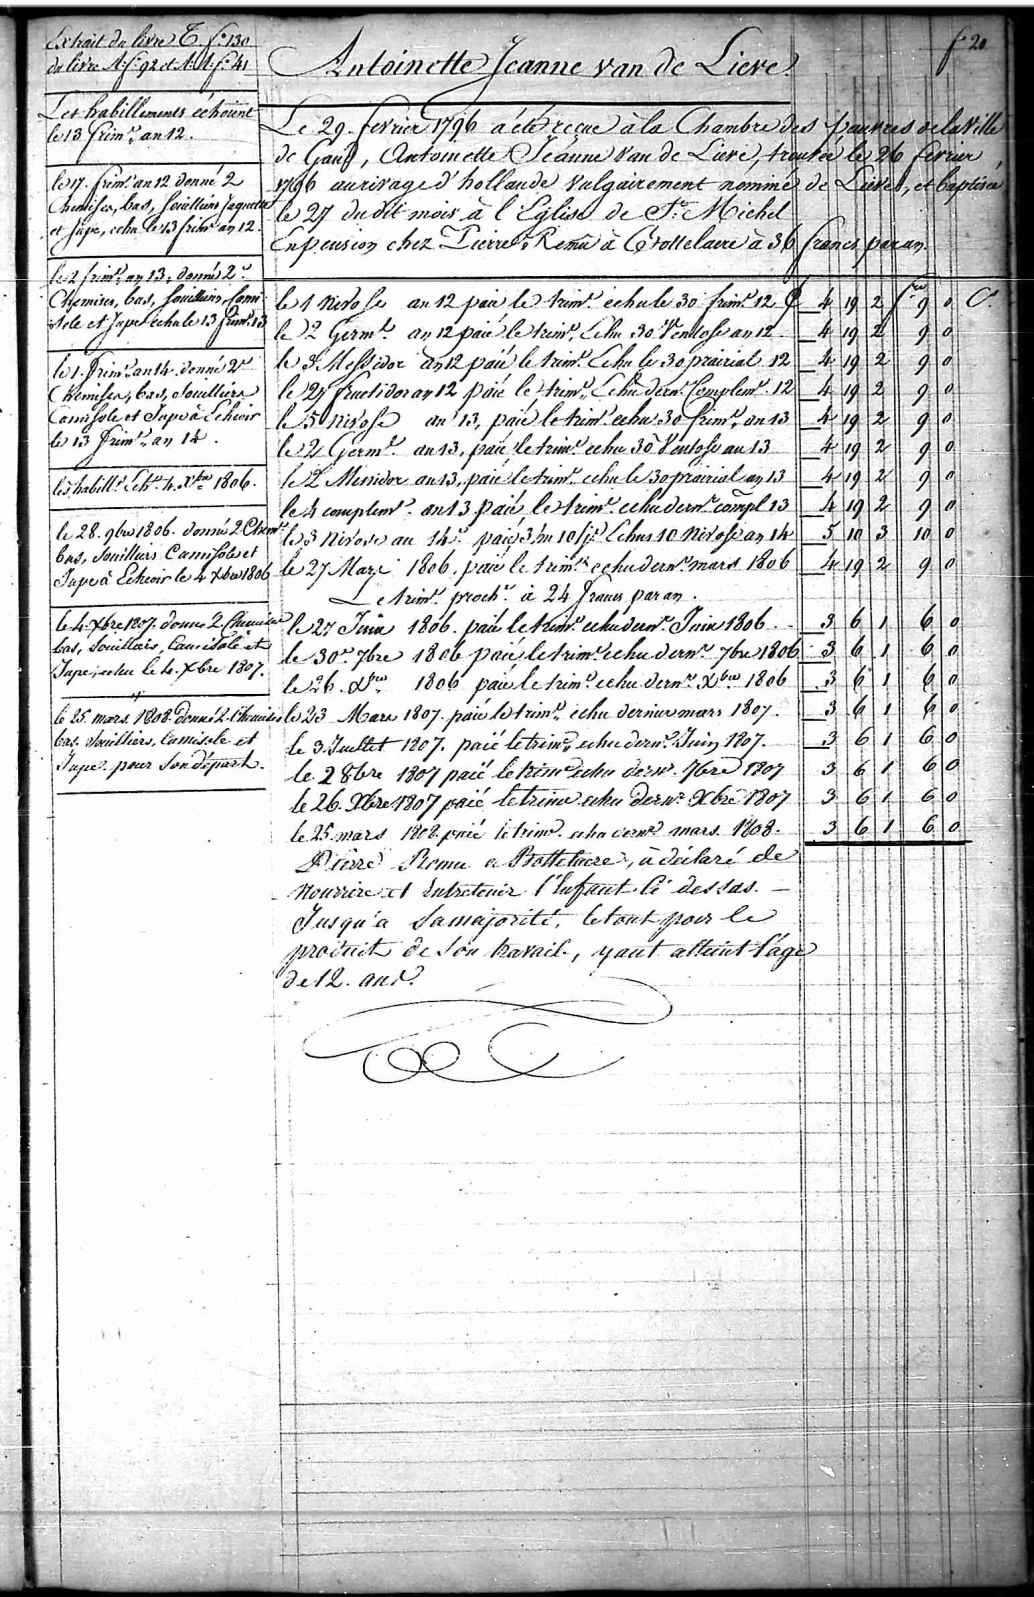 f° 20
Extrait du livre C. f° 130
du livre A. f° 92 et A. A. f° 41
Les habillements échoient
le 13 frimre an 12.
le 17. frimre an 12 donné 2
Chemises, bas, souilliers jaquette
et jupe, echu le 13 frimre an 12.
le 2 frimre an 13, donné 2
Chemises, bas, souilliers, Cami
sole et Jupe echu le 13 frimre 13
le 1. frimre an 14 donné 2
Chemises, bas, souilliers
Camisole et Jupe à Echeoir
le 13 frimre an 14.
les habillts Echt 4. Xbre 1806.
le 28. 9bre 1806. donné 2 Chem
bas, souilliers Camisole et
Jupe à Echeoir le 4 Xbre 1806
le 4. Xbre 1807. donné 2 Chemises
bas, souilliers, Camisole et
Jupe, echu le 4. Xbre 1807.
le 25. mars 1808. donné 2 Chemises
bas, souilliers, Camisole et
Jupe. pour son départ.
Antoinette Jeanne van de Lieve.
Le 29. fevrier 1796 a été reçue à la Chambre des pauvres de la Ville
de Gand, Antoinette Jeanne van de Lieve, trouvée le 26 fevrier
1796 au rivage d'hollande vulgairement nommé de Lieve, et baptisée
le 27 du dit mois à l'Eglise de St. Michel
En pension chez Pierre Remu à Bottelaere à 36 francs par an.
le 1 nivose an 12 paié le trimre echu le 30 frimre 12 £ 4 19 2 frcs 9 0 Cs
le 2 Germl an 12 paié le trimre Echu 30 Ventose an 12 4 19 2 9 0
le 3 Messidor an 12 paié le trimre Echu le 30 prairial 12 4 19 2 9 0
le 27 fructidor an 12 paié le trimre Echu dern. Complemre 12 4 19 2 9 0
le 5 nivose an 13, paié le trimre echu 30 frimre an 13 4 19 2 9 0
le 2 Germl an 13, paié le trimre echu 30 Ventose an 13 4 19 2 9 0
le 2 Messidor an 13, paié le trimre echu le 30 prairial an 13 4 19 2 9 0
le 4 complemre an 13 paié le trimre echu dernr compl 13 4 19 2 9 0
le 3 nivose an 14 paié 3 m 10 jrs Echus 10 Nivose an 14 5 10 3 10 0
le 27 Mars 1806. paié le trimre echu dernr mars 1806 4 19 2 9 0
Le trimre proch. à 24 francs par an.
le 27 Juin 1806. paié le trimre echu dernr Juin 1806. 3 6 1 6 0
le 30 7bre 1806 paié le trimre echu dernr 7bre 1806 3 6 1 6 0
le 26. Xbre 1806 paié le trimre echu dernr Xbre 1806 3 6 1 6 0
le 23 Mars 1807. paié le trimre echu dernier mars 1807. 3 6 1 6 0
le 3 Juillet 1807. paié le trimre echu dernr Juin 1807. 3 6 1 6 0
le 2 8bre 1807 paié le trimre echu dernr 7bre 1807 3 6 1 6 0
le 26. Xbre 1807 paié le trimre echu dernr Xbre 1807 3 6 1 6 0
le 25. mars 1808. paié le trimre echu dernr mars. 1808. 3 6 1 6 0
Pierre Remu a Bottelaere, à déclaré de
nourrire et Entretenir l'Enfant Ci dessus.
Jusqu'a sa majorité, le tout pour le
produit de son travail, yant atteint l'age
de 12. ans.